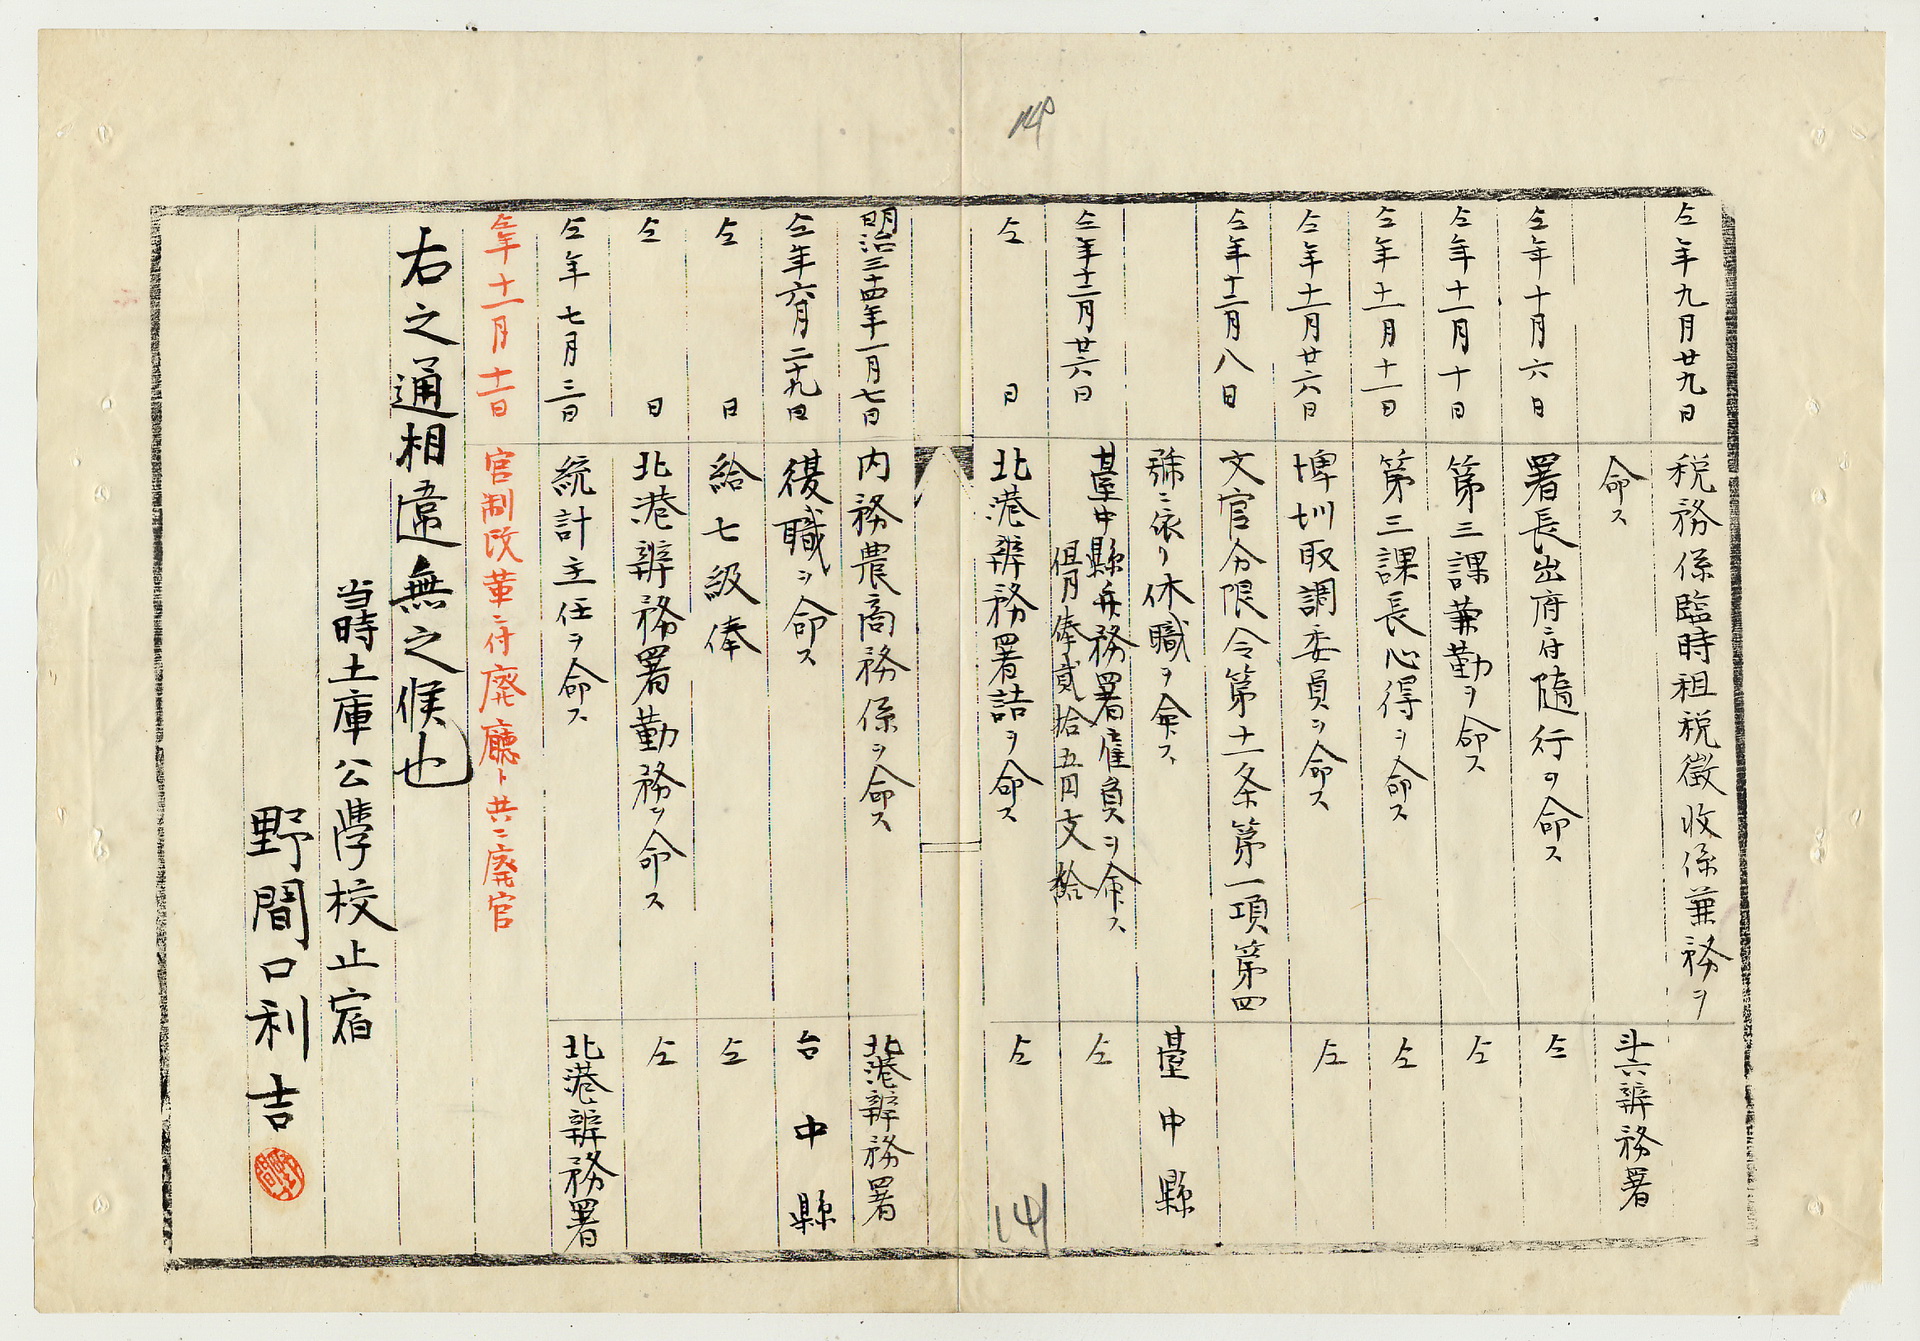 140
仝年九月廿九日 税務係臨時租税徴收係兼務ヲ
命ス 斗六辨務署
仝年十月六日 署長出府ニ付隨行ヲ命ス 仝
仝年十一月十日 第三課兼勤ヲ命ス 仝
仝年十一月十一日 第三課長心得ヲ命ス 仝
仝年十一月廿六日 埤圳取調委員ヲ命ス 仝
仝年十二月八日 文官分限令第十一条第一項第四
號ニ依リ休職ヲ命ス 臺中縣
仝年十二月廿六日 臺中縣弁務署雇員ヲ命ス 仝
但月俸貳拾五円支給
仝 日 北港辨務署詰ヲ命ス 仝
明治三十四年一月七日 内務農商務係ヲ命ス 北港辨務署
仝年六月二十九日 復職ヲ命ス 台中縣
仝 日 給七級俸 仝
仝 日 北港辨務署勤務ヲ命ス 仝
仝年七月三日 統計主任ヲ命ス 北港辨務署
仝年十一月十一日 官制改革ニ付廃廳ト共ニ廃官
右之通相違無之候也
当時土庫公學校止宿
野間口利吉
141